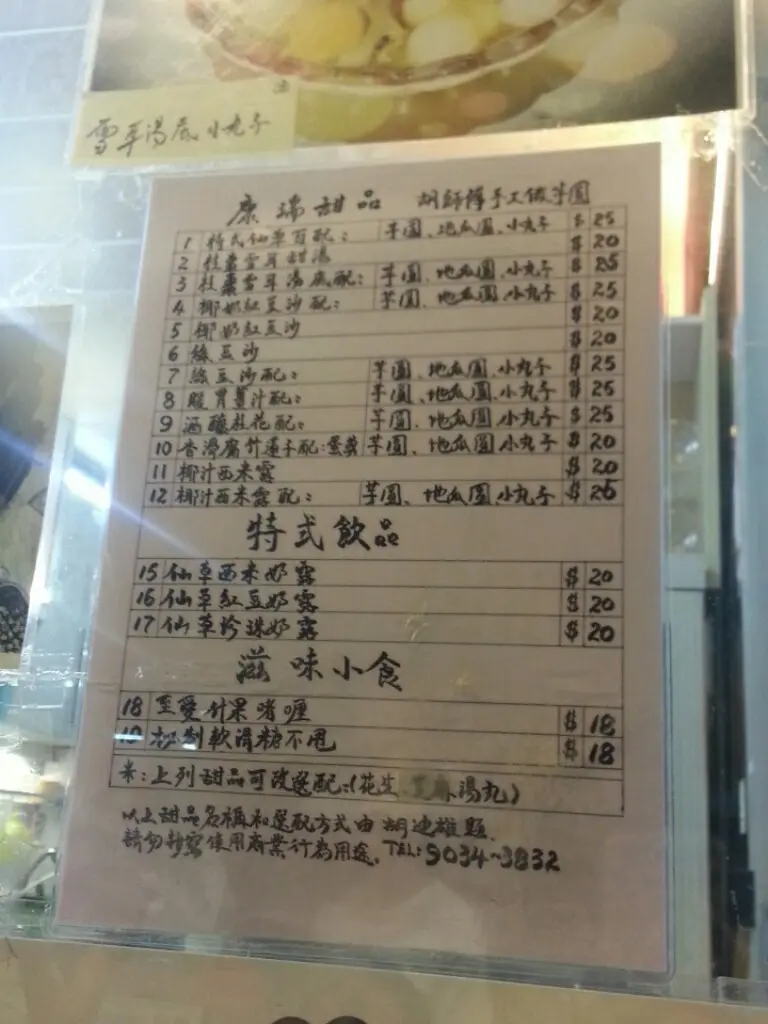 雪耳湯底小丸子
康瑞甜品 胡師傅手工做芋圓
1 特式仙草百配： 芋圓、地瓜圓、小丸子 $ 25
2 桂棗雪耳甜湯 $ 20
3 桂棗雪耳湯底配： 芋圓、地瓜圓、小丸子 $ 25
4 椰奶紅豆沙配： 芋圓、地瓜圓、小丸子 $ 25
5 椰奶紅豆沙 $ 20
6 綠豆沙 $ 20
7 綠豆沙配： 芋圓、地瓜圓、小丸子 $ 25
8 暖胃薑汁配： 芋圓、地瓜圓、小丸子 $ 25
9 酒釀桂花配： 芋圓、地瓜圓、小丸子 $ 25
10 香滑腐竹蓮子配： 芋圓、地瓜圓、小丸子 $ 20
11 椰汁西米露 $ 20
12 椰汁西米露配： 芋圓、地瓜圓、小丸子 $ 25
特式飲品
15 仙草西米奶露 $ 20
16 仙草紅豆奶露 $ 20
17 仙草珍珠奶露 $ 20
滋味小食
18 至愛什果啫喱 $ 18
19 制軟滑糖不甩 $ 18
米：上列甜品可改選配：(花生 湯丸)
以上甜品名稱和選配方式由胡迪雄題.
請勿抄寫使用商業行為用途。TEL：9034-3832